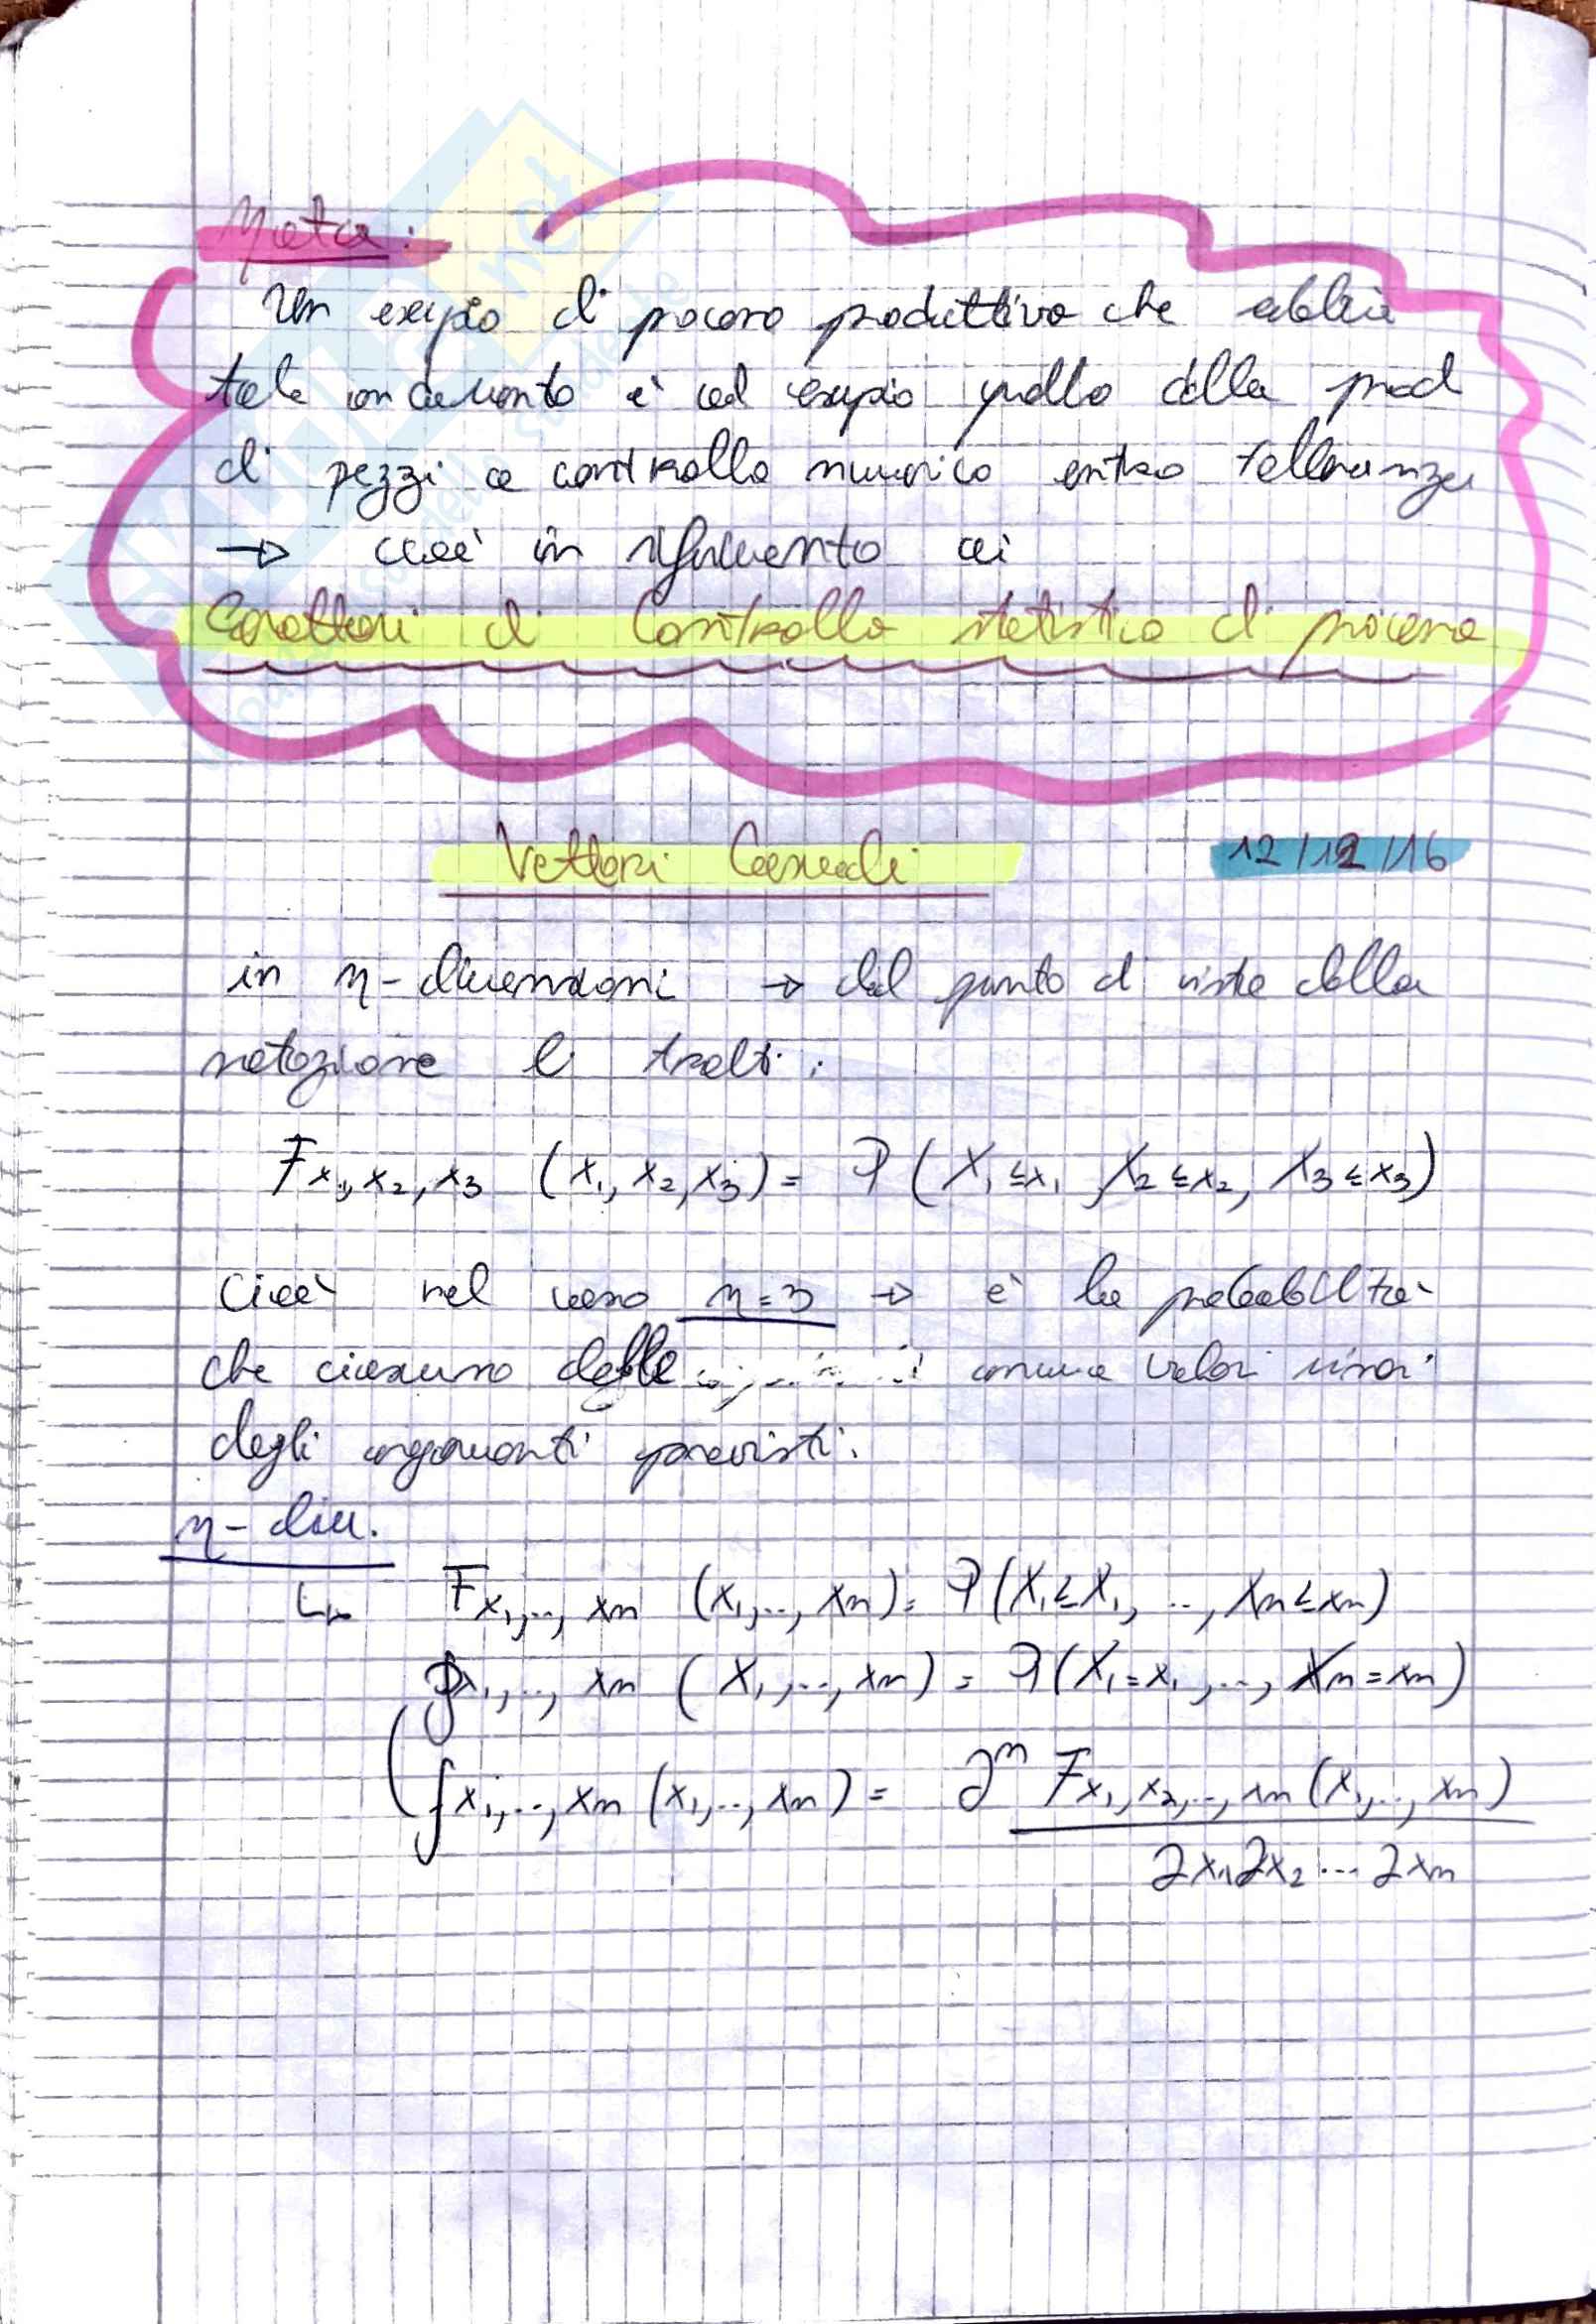 Nota:
Un esempio di processo produttivo che abbia
tale andamento è ad esempio quello della prod
di pezzi a controllo numerico entro tolleranza
→ cioè in riferimento ai
Caratteri di Controllo statistico di processo
Vettori Casuali 12/12/16
in n-dimensioni → dal punto di vista della
notazione si tratta:
F_{X1,X2,X3} (x1, x2, x3) = P (X1 ≤ x1, X2 ≤ x2, X3 ≤ x3)
Cioè nel caso n=3 → è la probabilità
che ciascuno delle assuma valori minori
degli argomenti previsti.
n-dim.
↳ F_{X1,..,Xn} (x1,..,xn) = P(X1 ≤ x1, .., Xn ≤ xn)
P_{X1,..,Xn} (x1,..,xn) = P(X1 = x1,.., Xn = xn)
f_{X1,..,Xn} (x1,..,xn) = ∂^n F_{X1,X2,..,Xn} (x1,..,xn)
∂x1 ∂x2 ... ∂xn